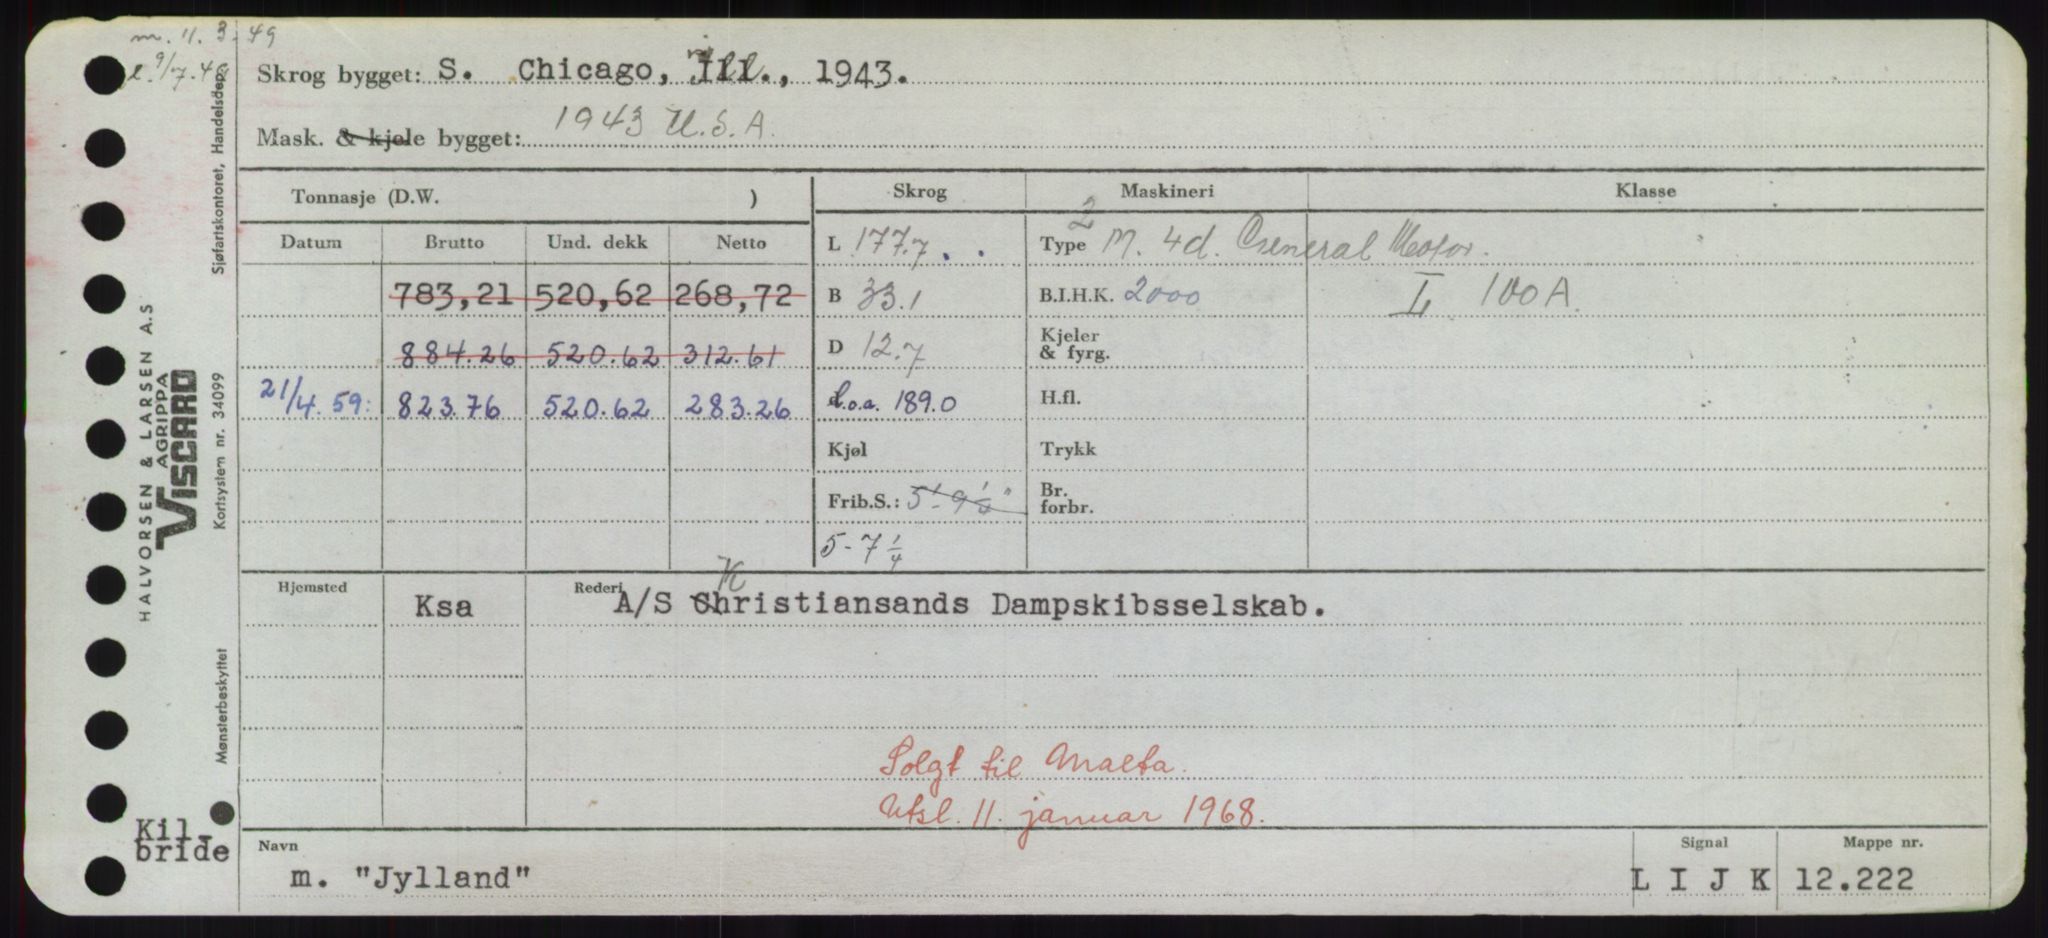 m. 11. 3. 49
l. 9/7.49
Skrog bygget: S. Chicago, Ill., 1943.
Mask. & kjele bygget: 1943 U.S.A.
Tonnasje (D.W. )
Skrog Maskineri Klasse
Datum Brutto Und. dekk Netto
L 177.7 Type 2 M. 4d. General Motor.
783,21 520,62 268,72 B 33.1 B.I.H.K. 2000 I 100A.
884.26 520.62 312.61 D 12.7 Kjeler & fyrg.
21/4.59: 823.76 520.62 283.26 l.o.a. 189.0 H.fl.
Kjøl Trykk
Frib.S.: 5'-9¼" Br. forbr.
5-7¼
Hjemsted Rederi
Ksa A/S KChristiansands Dampskibsselskab.
Solgt til Malta.
Utsl. 11. januar 1968.
Navn Signal Mappe nr.
m. "Jylland" L I J K 12.222
Kil-
bride
HALVORSEN & LARSEN A.S
AGRIPPA
VISCARD
Mønsterbeskyttet Kortsystem nr. 34099 Sjøfartskontoret, Handelsdep.